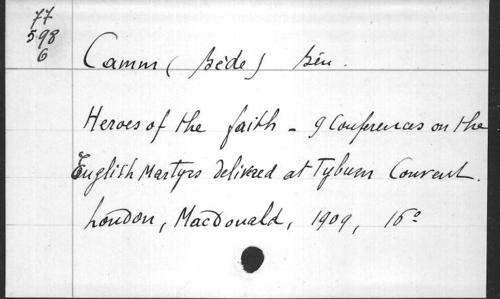 77
598
6
Camm (Bède) Bén.
Heroes of the faith - 9 Conferences on the
English Martyrs delivered at Tyburn Convent.
London, MacDonald, 1909, 16°